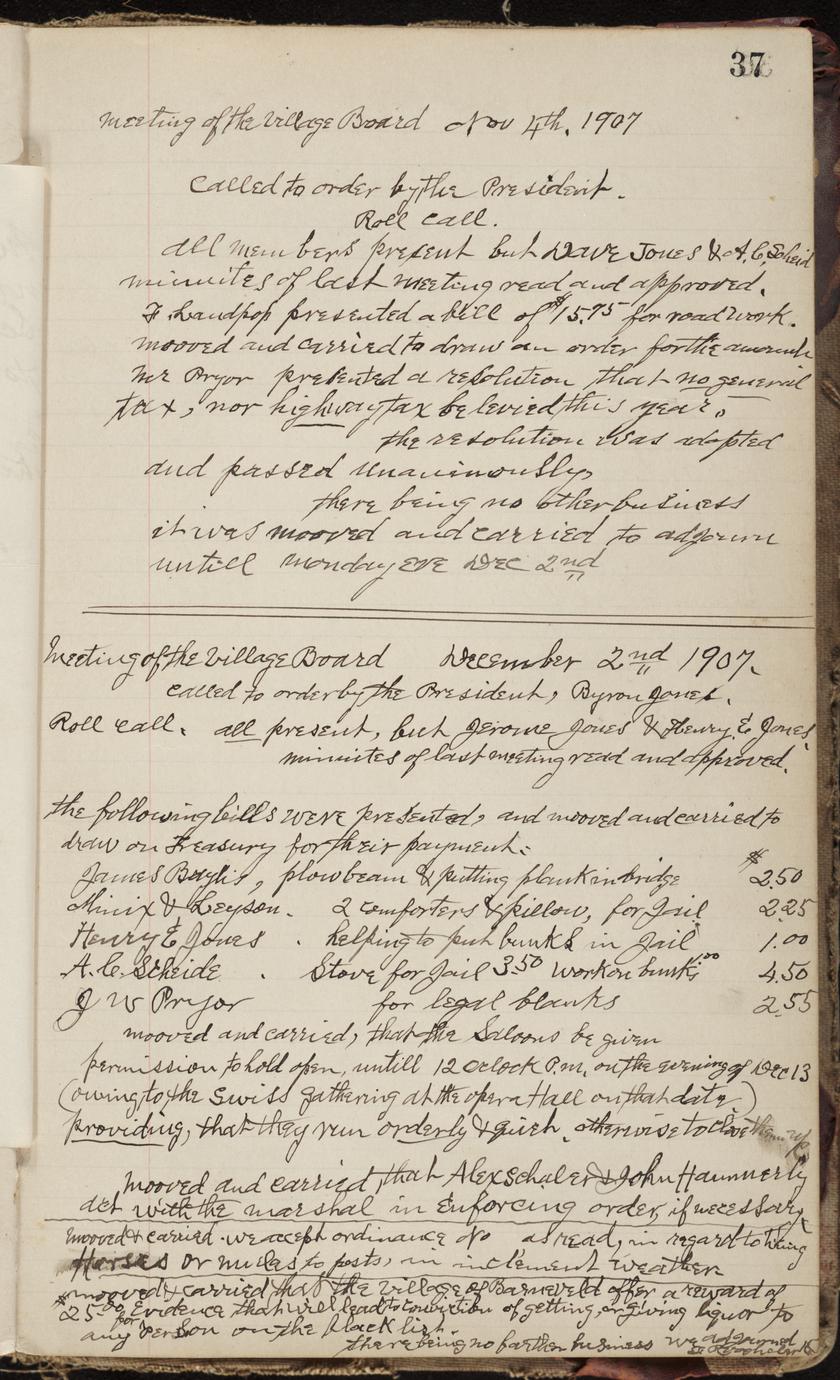 37
meeting of the Village Board Nov 4th, 1907
Called to order by the President.
Roll Call.
all members present but Dave Jones & A.C. Scheid
minuites of last meeting read and approved.
F. Landpop presented a bill of $15.75 for road work.
mooved and carried to draw an order for the amount
Mr Pryor presented a resolution that no general
tax, nor highway tax be levied this year.
the resolution was adopted
and passed unanimously,
there being no other business
it was mooved and carried to adjourn
untill monday eve Dec 2nd
Meeting of the Village Board December 2nd 1907.
Called to order by the President, Byron Jones.
Roll Call. all present, but Jerome Jones & Henry E Jones,
minuites of last meeting read and approved.
the following bills were presented, and mooved and carried to
draw on Treasury for their payment:
James Baylis, plow beam & putting plank in bridge $2.50
Minix & Leyson. 2 comforters & pillow, for Jail 2.25
Henry E Jones . helping to put bunks in Jail 1.00
A.C. Scheide . Stove for Jail 3.50 work on bunks 1.00 4.50
J W Pryor for legal blanks 2.55
mooved and carried, that the Saloons be given
permission to hold open, untill 12 oclock P.m. on the evening of Dec 13
(owing to the Swiss gathering at the opera Hall on that date)
providing, that they run orderly & quiet, otherwise to close them up
mooved and carried, that Alex Schaler & John Hammerly
act with the marshal in Enforcing order, if necessary
mooved & carried. we accept ordinance No as read, in regard to tieing
Horses or mules to posts, in inclement weather
mooved & carried that the Village of Barneveld offer a reward of
$25.00 for Evidence that will lead to conviction of getting, or giving liquor to
any person on the black list.
there being no farther business we adjourned